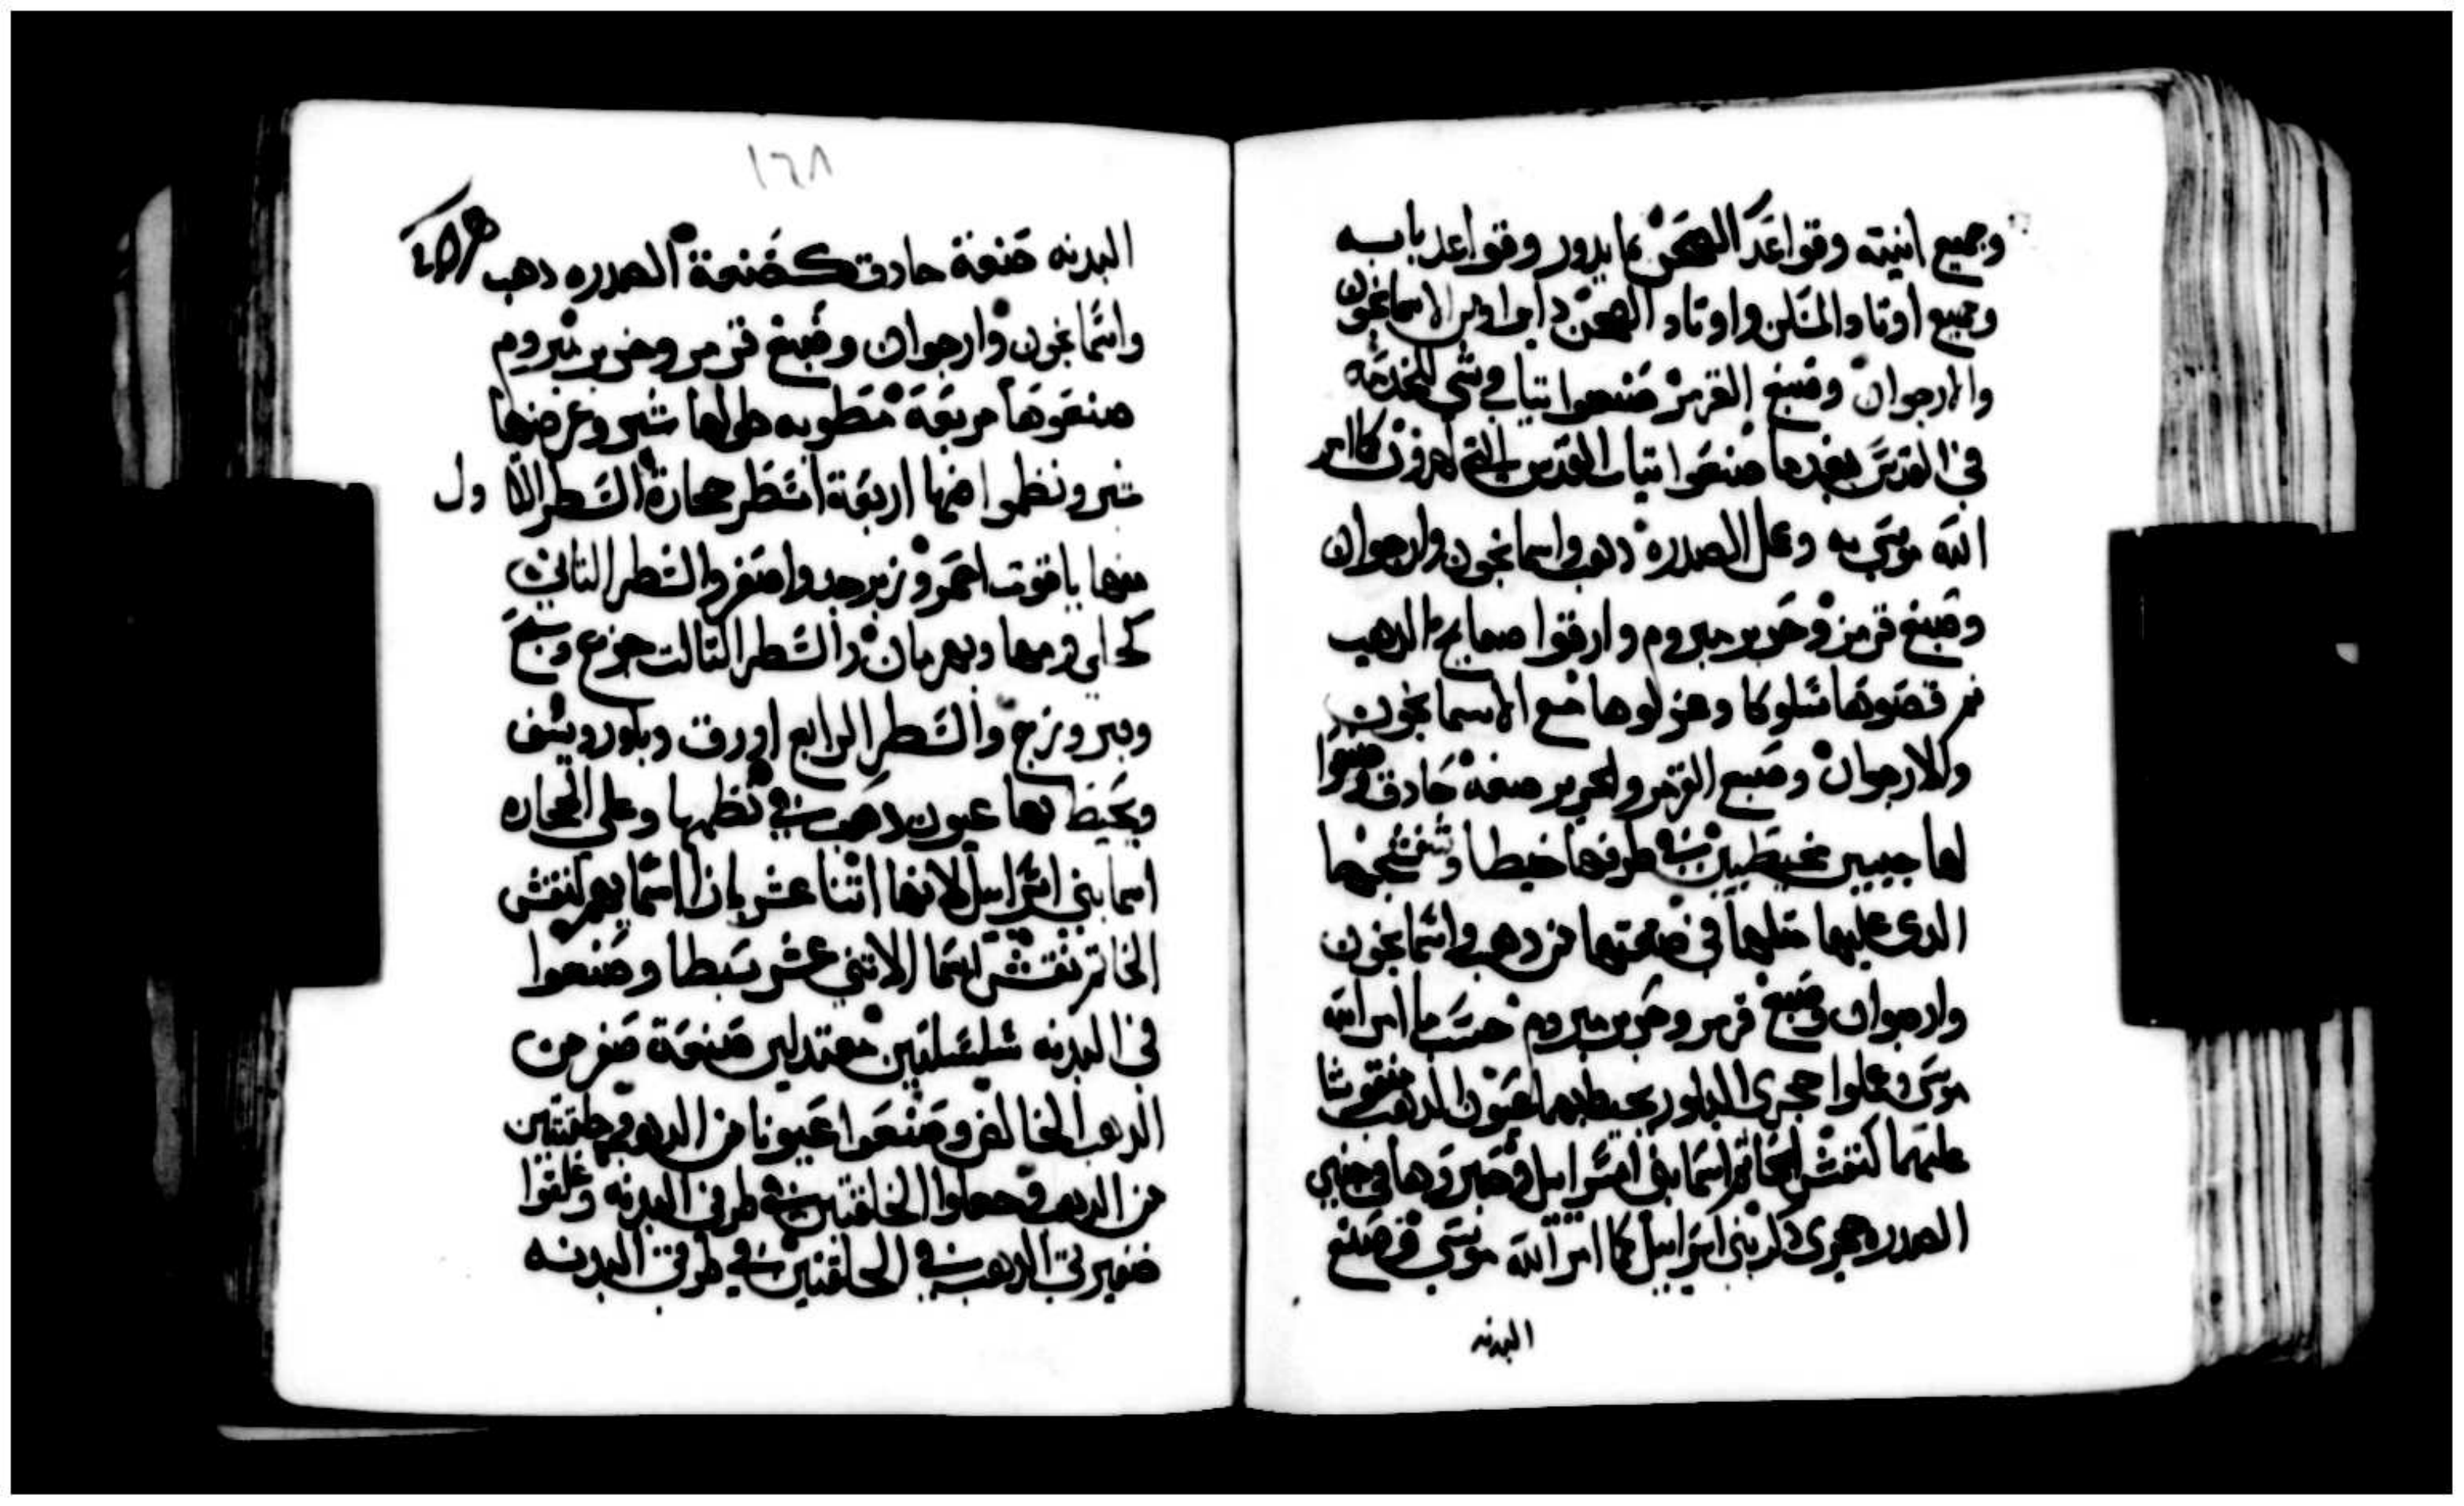 وجميع انيته وقواعد الصحن مما يدور وقواعد بابه
وجميع اوتاد المسكن واوتاد الصحن دايرا ومن الاسمانجون
والارجوان وصبغ القرمز صنعوا تيابا وشي للخدمه
في القدس بعدما صنعوا تياب القدس التي لهرون كما امر
الله موسى به وعمل الصدره دهب واسمانجون وارجوان
وصبغ قرمز وحرير مبروم وارقوا صفايح الدهب
ثم قصوها سلوكا وغزلوها مع الاسمانجون
والارجوان وصبع القرمز والحرير صنعة حادق وصنعوا
لها جيبين مخيطين في طرفها خيطا
الدى عليها متلها في صنعتها من دهب واسمانجون
وارجوان وصبغ قرمز وحرير مبروم حسب ما امر الله
موسى وعملوا حجرى البلور يحيط بهما عيون الدهب منقوشا
عليهما كنقش الخاتم اسما بني اسرايل وصيروها في جنبي
الصدره حجرى دكر بني اسرايل كما امر الله موسى وصنع
البدنه
١٦٨
البدنه صنعة حادق كصنعة الصدره دهب
واسمانجون وارجوان وصبغ قرمز وحرير مبروم
صنعوها مربعة مطويه طولها شبر وعرضها
شبر ونظموا فيها اربعة اسطر حجارة السطر الاول
منها ياقوت احمر وزبرجد واصفر والسطر التاني
كحلي ومها وبهرمان والسطر التالت جزع وسبج
وفيروزج والسطر الرابع ازرق وبلور ويشف
ويحيط بها عيون دهب في نظمها وعلى الحجاره
اسما بني اسرايل لانها اتنا عشر بازا اسمايهم كنقش
الخاتم نقش اسما الاتني عشر سبطا وصنعوا
في البدنه سلسلتين معتدلين صنعة ضفر من
الدهب الخالص وصنعوا عيونا من الدهب وحلقتين
من الدهب وجعلوا الحلقتين في طرفي البدنه وعلقوا
ضفيرتي الدهب في الحلقتين في طرفي البدنه